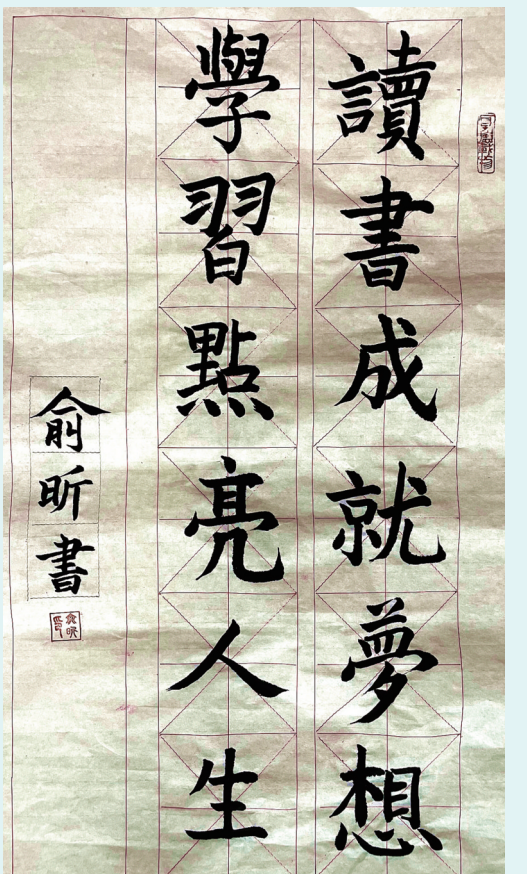 讀書成就夢想
學習點亮人生
俞昕書